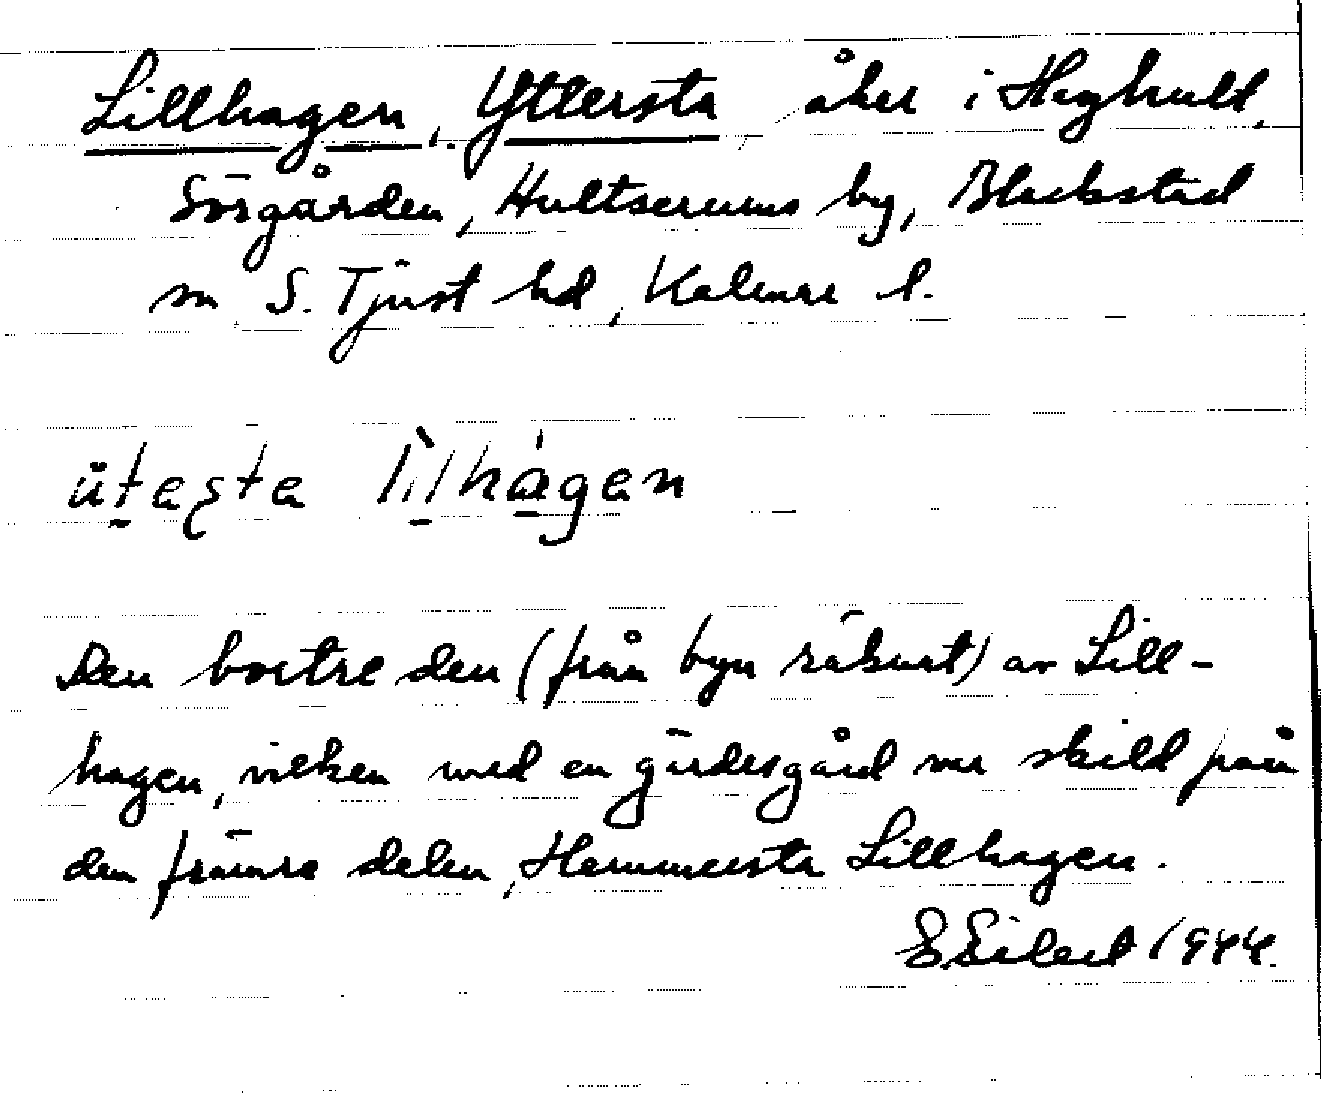 Lillhagen, Yttersta, åker i Heghult,
Sörgården, Hultserums by, Blackstad
sn S. Tjust hd, Kalmar l.
ütesta lìlhágen
Den bortre den (från byn räknat) av Lill-
hagen, vilken med en gärdesgård var skild från
den främre delen, Hemmersta Lillhagen.
E. Eilert 1944.